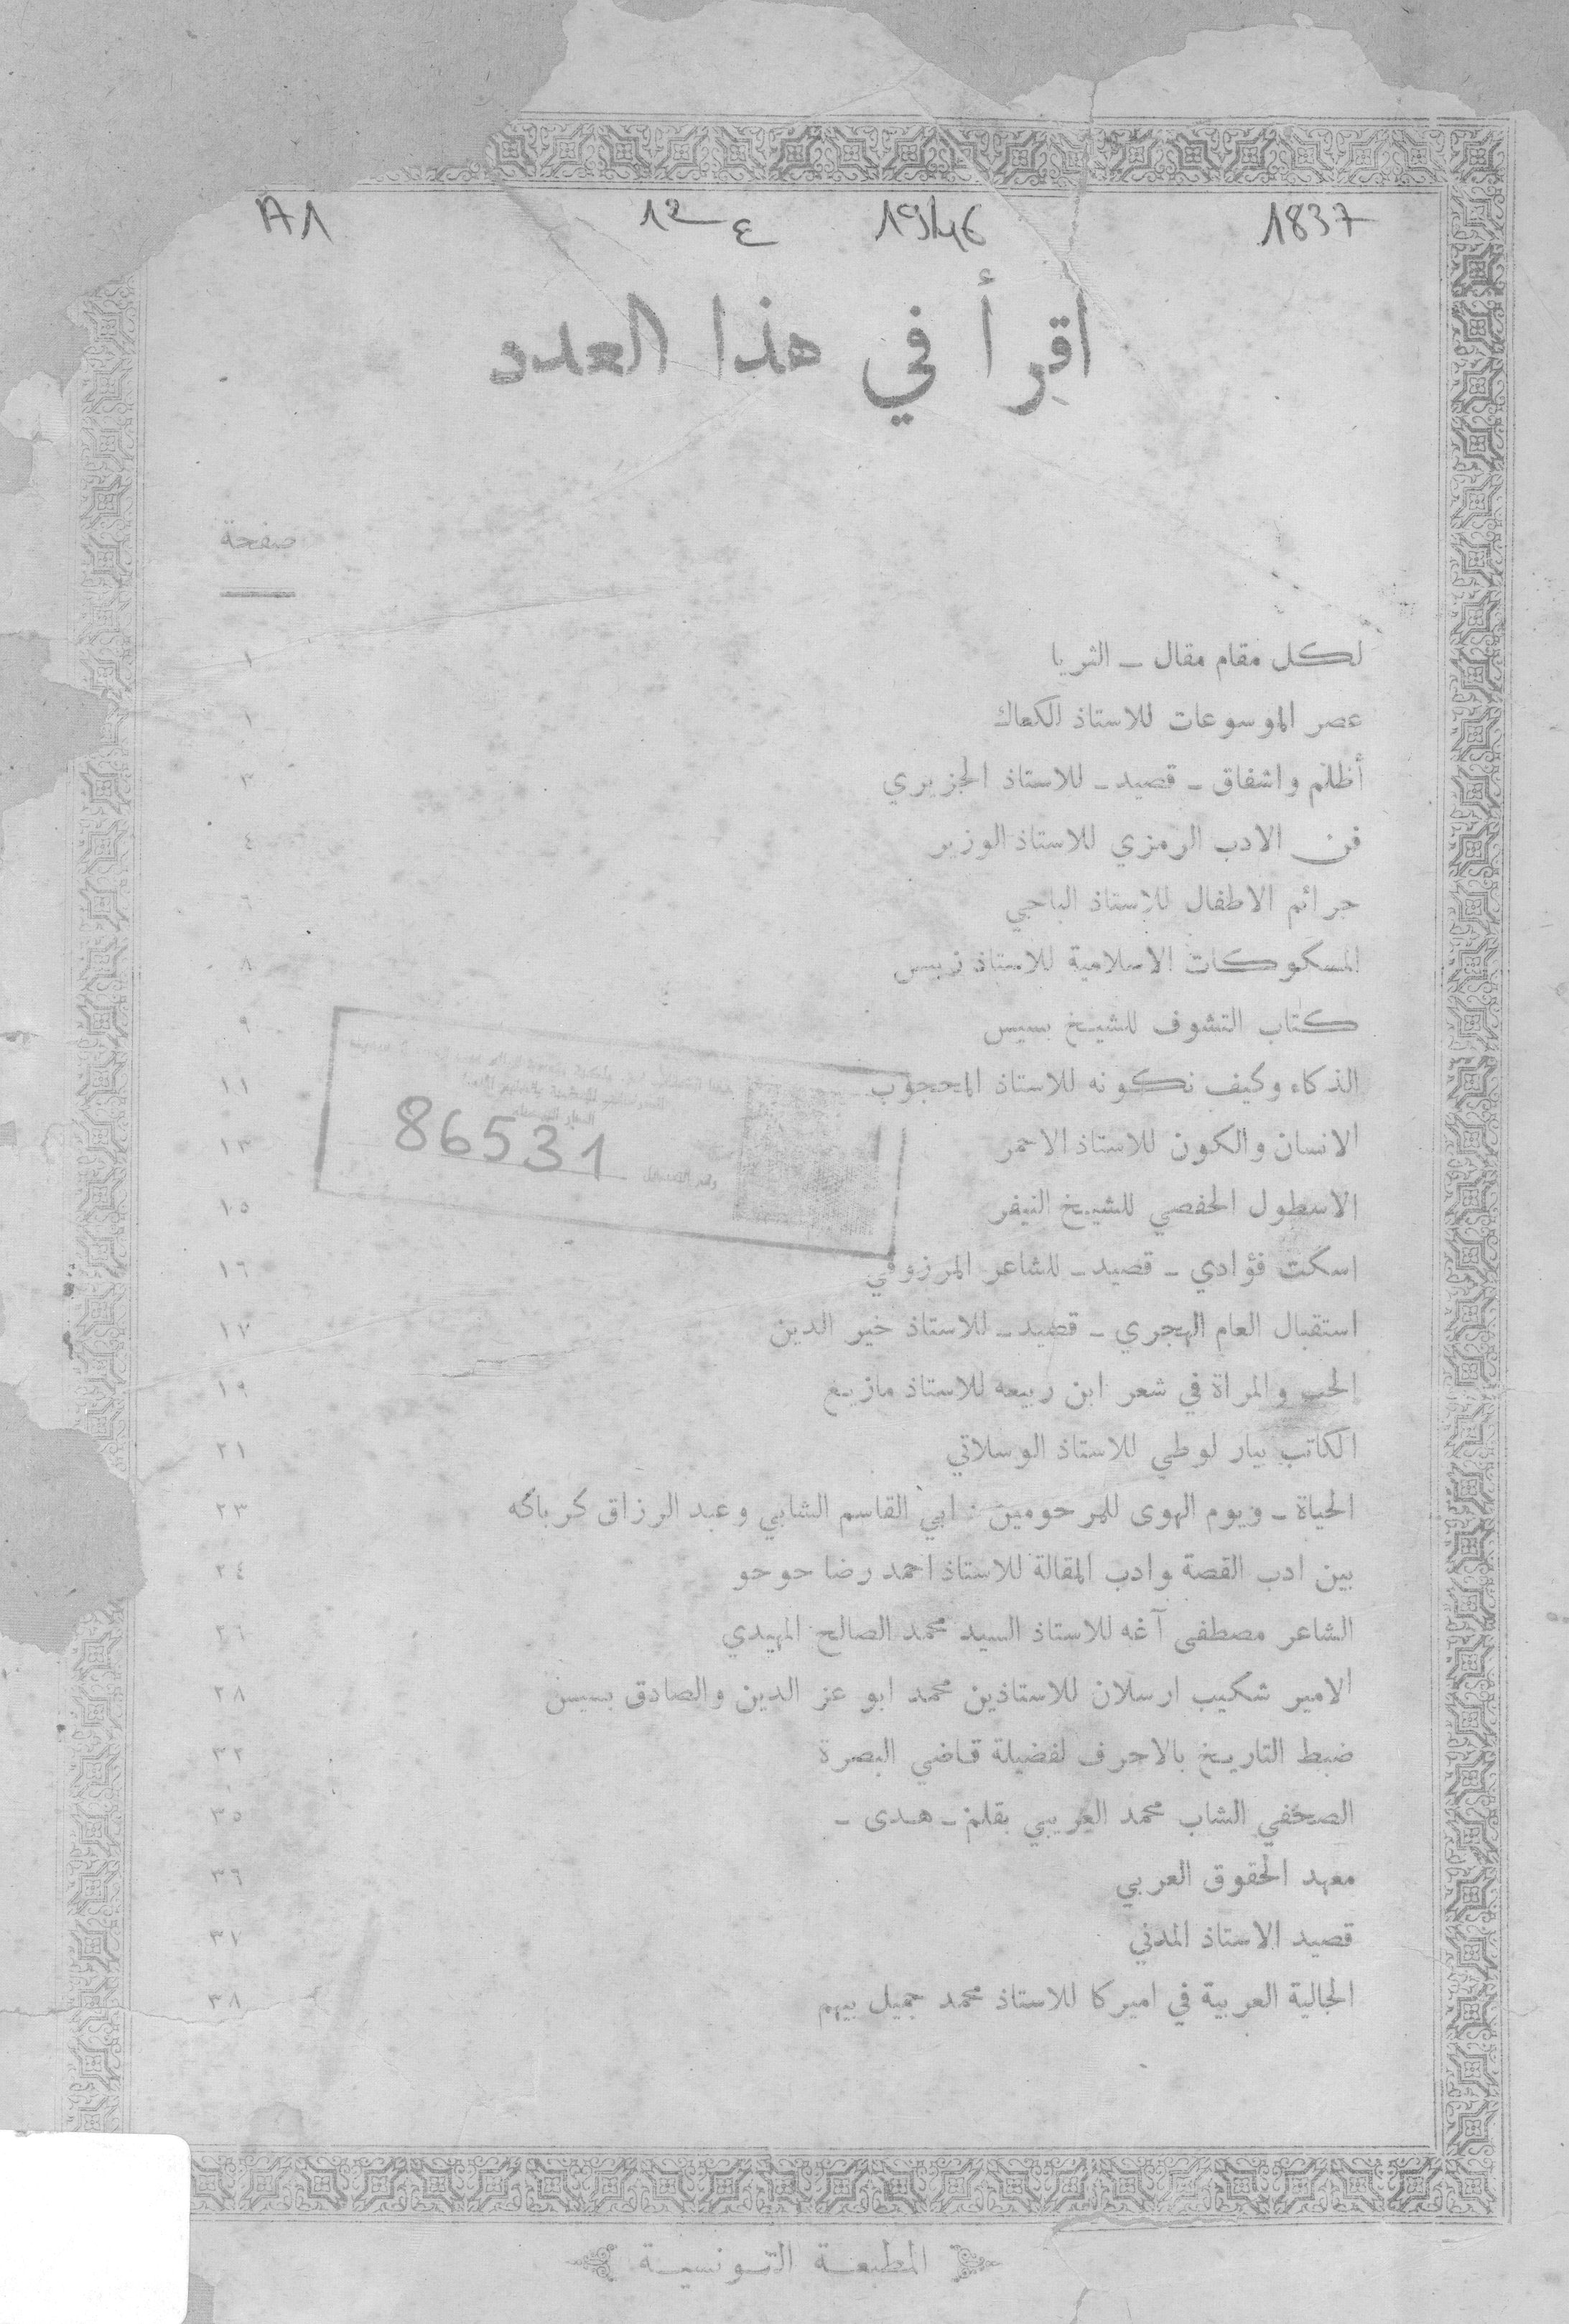 1837 1946 ع 12 A1
اقرأ في هذا العدد
صفحة
لكل مقام مقال – الثريا ١
عصر الموسوعات للاستاذ الكعاك ١
أظلم واشفاق – قصيد – للاستاذ الجزيري ٣
فن الادب الرمزي للاستاذ الوزير ٤
جرائم الاطفال للاستاذ الباجي ٦
المسكوكات الاسلامية للاستاذ زبيس ٨
كتاب التشوف للشيخ بسيس ٩
الذكاء وكيف نكونه للاستاذ المحجوب ١١
الانسان والكون للاستاذ الاحمر ١٣
الاسطول الحفصي للشيخ النيفر ١٥
اسكت فؤادي – قصيد – للشاعر المرزوقي ١٦
استقبال العام الهجري – قصيد – للاستاذ خير الدين ١٧
الحب والمراة في شعر ابن ربيعه للاستاذ مازيغ ١٩
الكاتب بيار لوطي للاستاذ الوسلاتي ٢١
الحياة – ويوم الهوى للمرحومين : ابي القاسم الشابي وعبد الرزاق كرباكه ٢٣
بين ادب القصة وادب المقالة للاستاذ احمد رضا حوحو ٢٤
الشاعر مصطفى آغه للاستاذ السيد محمد الصالح المهيدي ٢٦
الامير شكيب ارسلان للاستاذين محمد ابو عز الدين والصادق بسيس ٢٨
ضبط التاريخ بالاحرف لفضيلة قاضي البصرة ٣٢
الصحفي الشاب محمد العريبي بقلم – هدى – ٣٥
معهد الحقوق العربي ٣٦
قصيد الاستاذ المدني ٣٧
الجالية العربية في اميركا للاستاذ محمد جميل بيهم ٣٨
86531
المطبعة التونسية